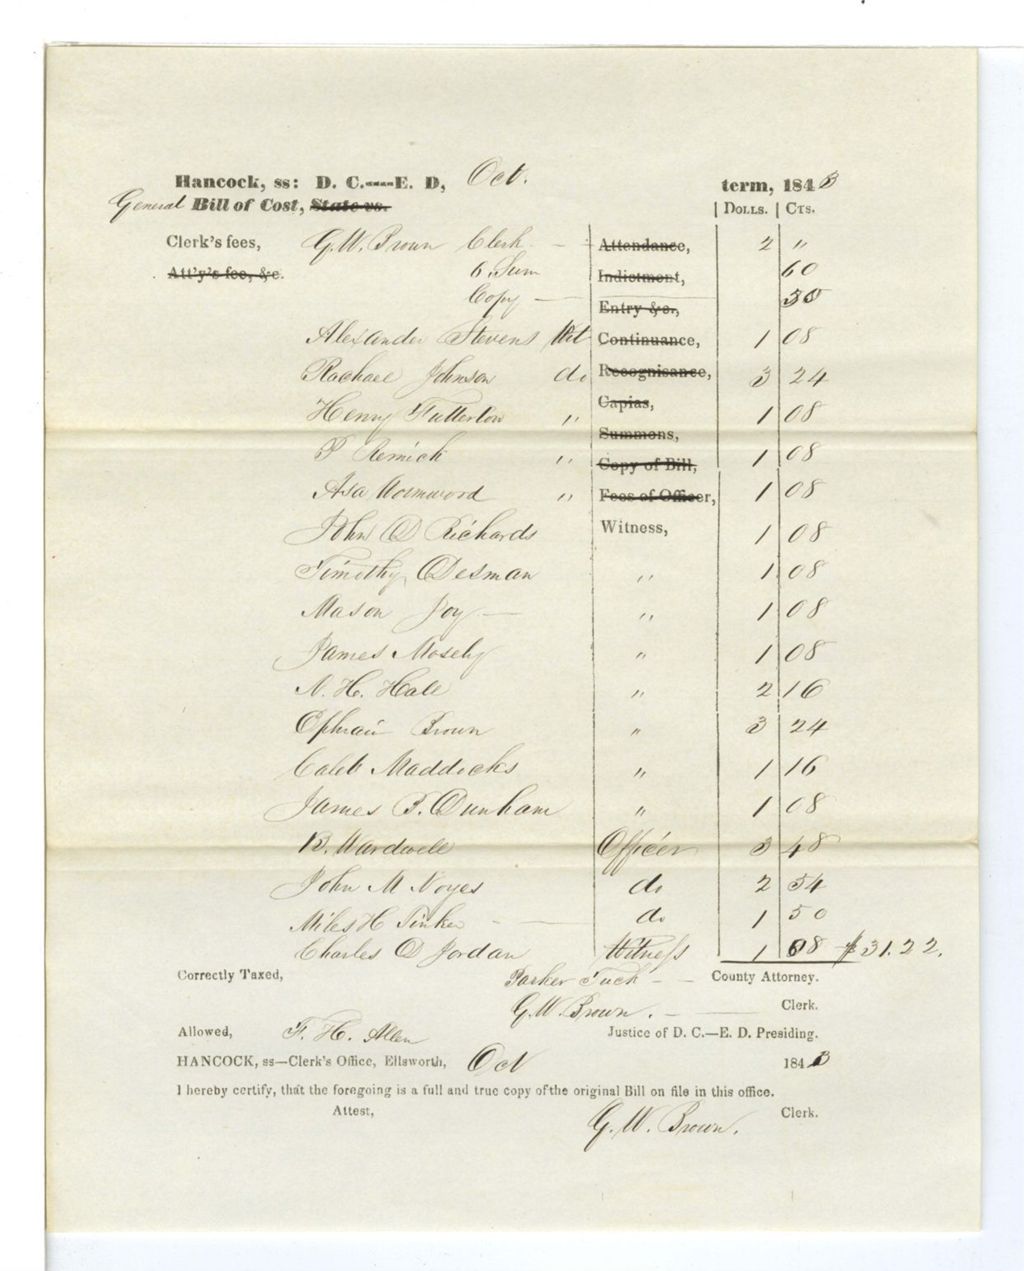 Hancock, ss: D. C.----E. D, Oct. term, 1843
General Bill of Cost, State vs. | Dolls. | Cts.
Clerk's fees, G. W. Brown Clerk - Attendance, 2 "
Att'y's fee, &c. 6. Sum Indictment, 60
Copy — Entry &c., 30
Alexander Stevens Wit Continuance, 1 08
Rachael Johnson do Recognisance, 3 24
Henry Fullerton " Capias, 1 08
Summons,
P Remick " Copy of Bill, 1 08
Asa Wormwood " Fees of Officer, 1 08
John D Richards Witness, 1 08
Timothy Desman " 1 08
Mason Joy — " 1 08
James Mosely " 1 08
N. H. Hale " 2 16
Ephraim Brown " 3 24
Caleb Maddocks " 1 16
James B. Dunham " 1 08
B. Wardwell Officer 3 48
John M Noyes do 2 54
Miles H Tinker - — do 1 50
Charles D Jordan Witness 1 08 $31.22.
Correctly Taxed, Parker Tuck - - County Attorney.
G. W. Brown. - — Clerk.
Allowed, F. H. Allen Justice of D. C.—E. D. Presiding.
HANCOCK, ss—Clerk's Office, Ellsworth, Oct 1843
I hereby certify, that the foregoing is a full and true copy of the original Bill on file in this office.
Attest, G. W. Brown. Clerk.